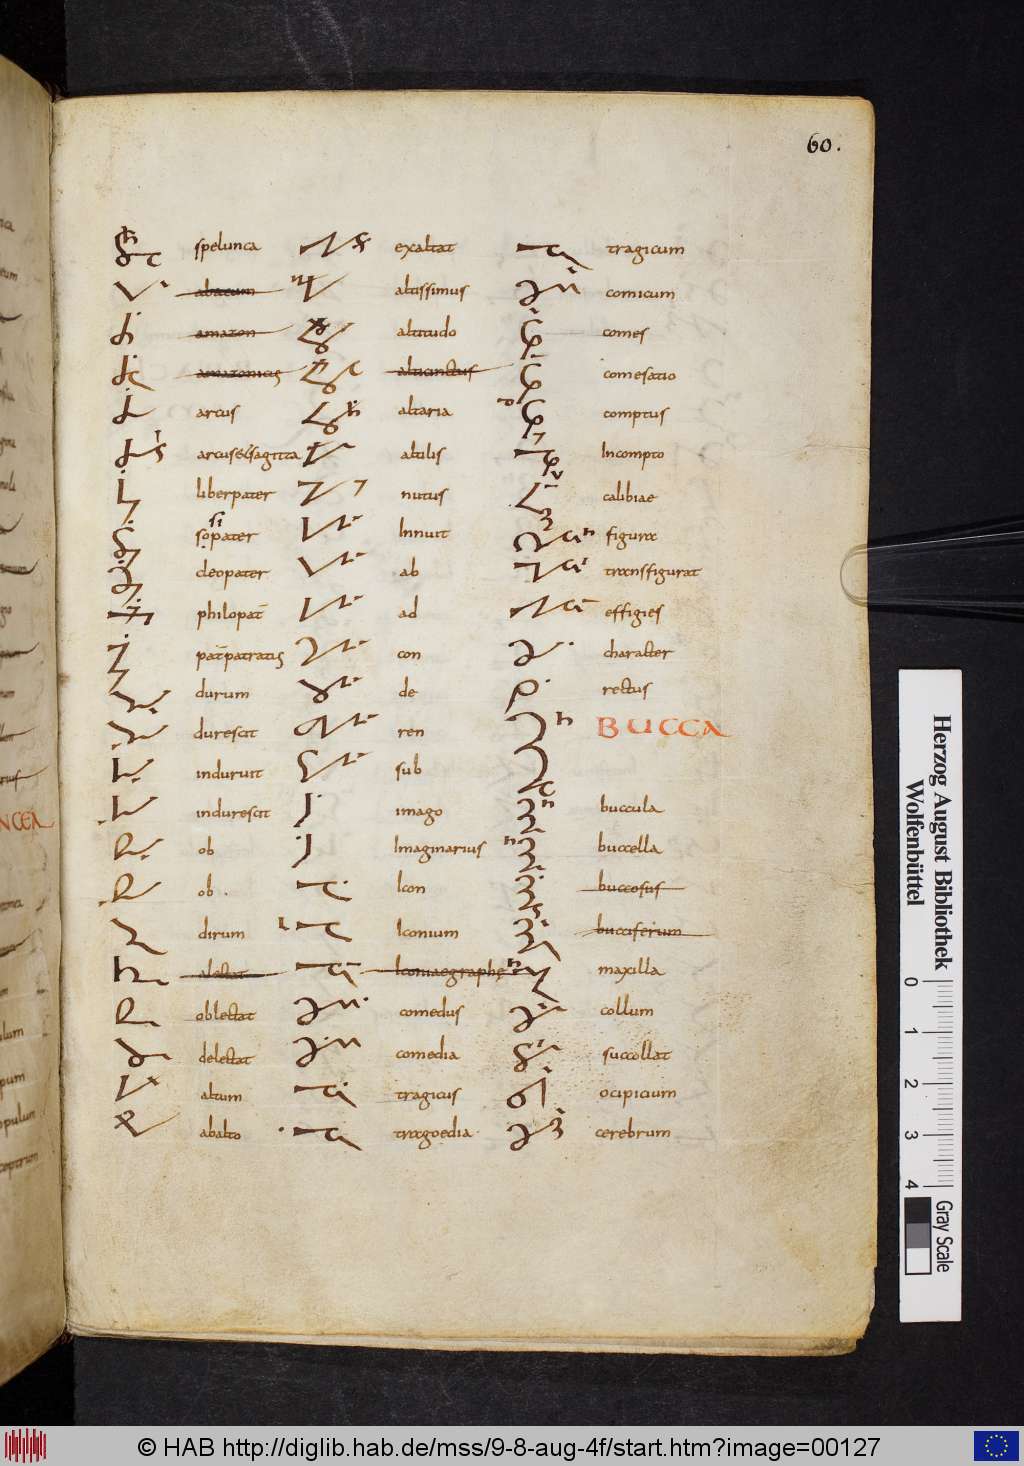 60.
spelunca
abacum
amazon
amazonicus
arcus
arcus et sagitta
liberpater
sopater
si
cleopater
philopat̄
pat̄patratus
durum
durescit
induruit
indurescit
ob
ob .
dirum
alectat
oblectat
delectat
altum
abalto
exaltat
altissimus
altitudo
alticinctus
altaria
altilis
nutus
Innuit
ab
ad
con
de
ren
sub
imago
Imaginarius
Icon
Iconium
comedus
comedia
tragicus
tragoedia
tragicum
comicum
comes
comesatio
comptus
Incompto
calibiae
figura
transfigurat
effigies
character
rectus
BUCCA
buccula
buccella
buccosus
bucciferum
maxilla
collum
succollat
ocipicium
cerebrum
Herzog August Bibliothek
Wolfenbüttel
0 1 2 3 4
Gray Scale
© HAB http://diglib.hab.de/mss/9-8-aug-4f/start.htm?image=00127